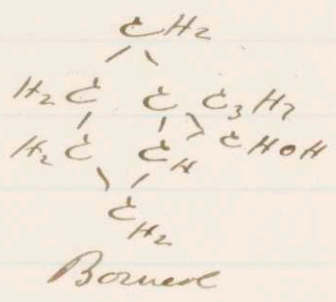 CH2
H2C C C3H7
H2C CH CHOH
CH2
Borneol